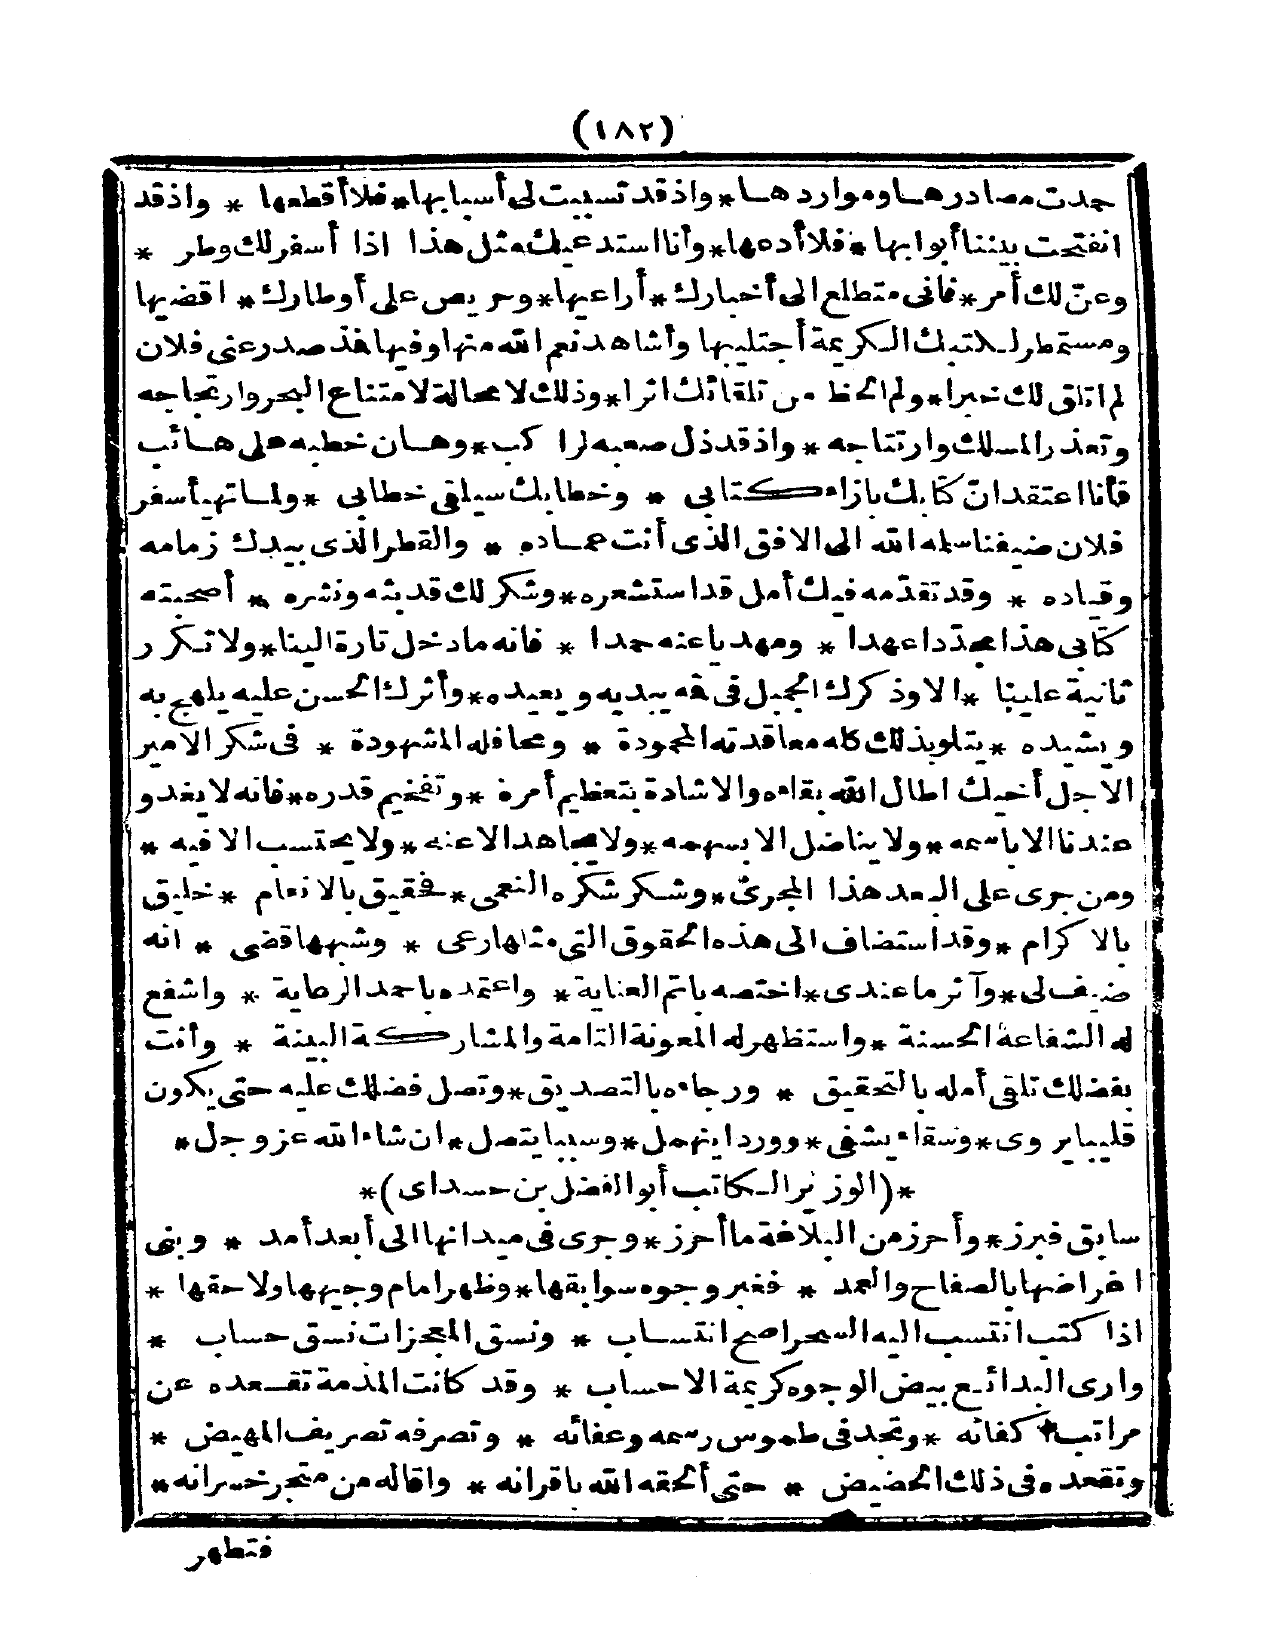 (١٨٢)
حمدت مصادرها ومواردها * واذ قد تسببت لى أسبابها * فلا أقطعها * واذ قد
انفتحت بيننا أبوابها * فلا أدمها * وأنا استدعيك مثل هذا اذا أسفر لك وطر *
وعنّ لك أمر * فانى متطلع الى أخبارك * أراعيها * وحريص على أوطارك * اقضيها
ومستمطر لـ الكريمة أجتليها وأشاهد نعم الله منها وفيها فقد صدر عنى فلان
لم اتلق لك خبرا * ولم الحظ من تلقائك اثرا * وذلك لا محالة لامتناع البحر وارتجاجه
وتعذر المسلك وارتتاجه * واذ قد ذل صعبه لراكب * وهان خطبه على هائب
فأنا اعتقد انّ كتابك بازاء كتابى * وخطابك سيلقى خطابى * ولما تهيأ سفر
فلان ضيفنا سلمه الله الى الافق الذى أنت عماده * والقطر الذى بيدك زمامه
وقياده * وقد تقدّمه فيك أمل قد استشعره * وشكر لك قد بثه ونشره * أصحبته
كتابى هذا مجدّدا عهدا * ومهديا عنه حمدا * فانه ما دخل تارة الينا * ولا تكرر
ثانية علينا * الا وذكرك الجميل فى فمه يبديه ويعيده * وأثرك الحسن عليه يلهج به
ويشيده * يتلو بذلك كله معاقدته المحمودة * ومحافله المشهودة * فى شكر الامير
الاجل أخيك اطال الله بقاءه والاشادة بتعظيم أمره * وتفخيم قدره * فانه لا يغدو
عندنا الا باسمه * ولا يناضل الا بسهمه * ولا يجاهد الا عنه * ولا يحتسب الا فيه *
ومن جرى على البعد هذا المجرى * وشكر شكره النعمى * فحقيق بالانعام * خليق
بالاكرام * وقد استضاف الى هذه الحقوق التى مثلها رعى * وشبهها قضى * انه
ضيف لى * وآثر ما عندى * اختصه باتم العناية * واعتمده باحمد الرعاية * واشفع
له الشفاعة الحسنة * واستظهر له المعونة التامة والمشاركة البينة * وأنت
بفضلك تلقى أمله بالتحقيق * ورجاءه بالتصديق * وتصل فضلك عليه حتى يكون
قليبا يروى * وسقاء يشفى * ووردا ينهمل * وسببا يتصل * ان شاء الله عز وجل *
* (الوزير الكاتب أبو الفضل بن حسداى) *
سابق فبرز * وأحرز من البلاغة ما أحرز * وجرى فى ميدانها الى أبعد أمد * وبنى
اغراضها بالصفاح والعمد * فغبر وجوه سوابقها * وظهر امام وجيهها ولاحقها *
اذا كتب انتسب اليه السحر اصح انتساب * ونسق المعجزات نسق حساب *
وارى البدائع بيض الوجوه كريمة الاحساب * وقد كانت الذمة تقعده عن
مراتب اكفائه * وتجد فى طموس رسمه وعفائه * وتصرفه تصريف المهيض *
وتقعده فى ذلك الحضيض * حتى ألحقه الله باقرانه * واقاله من متجر خسرانه *
فتطهر